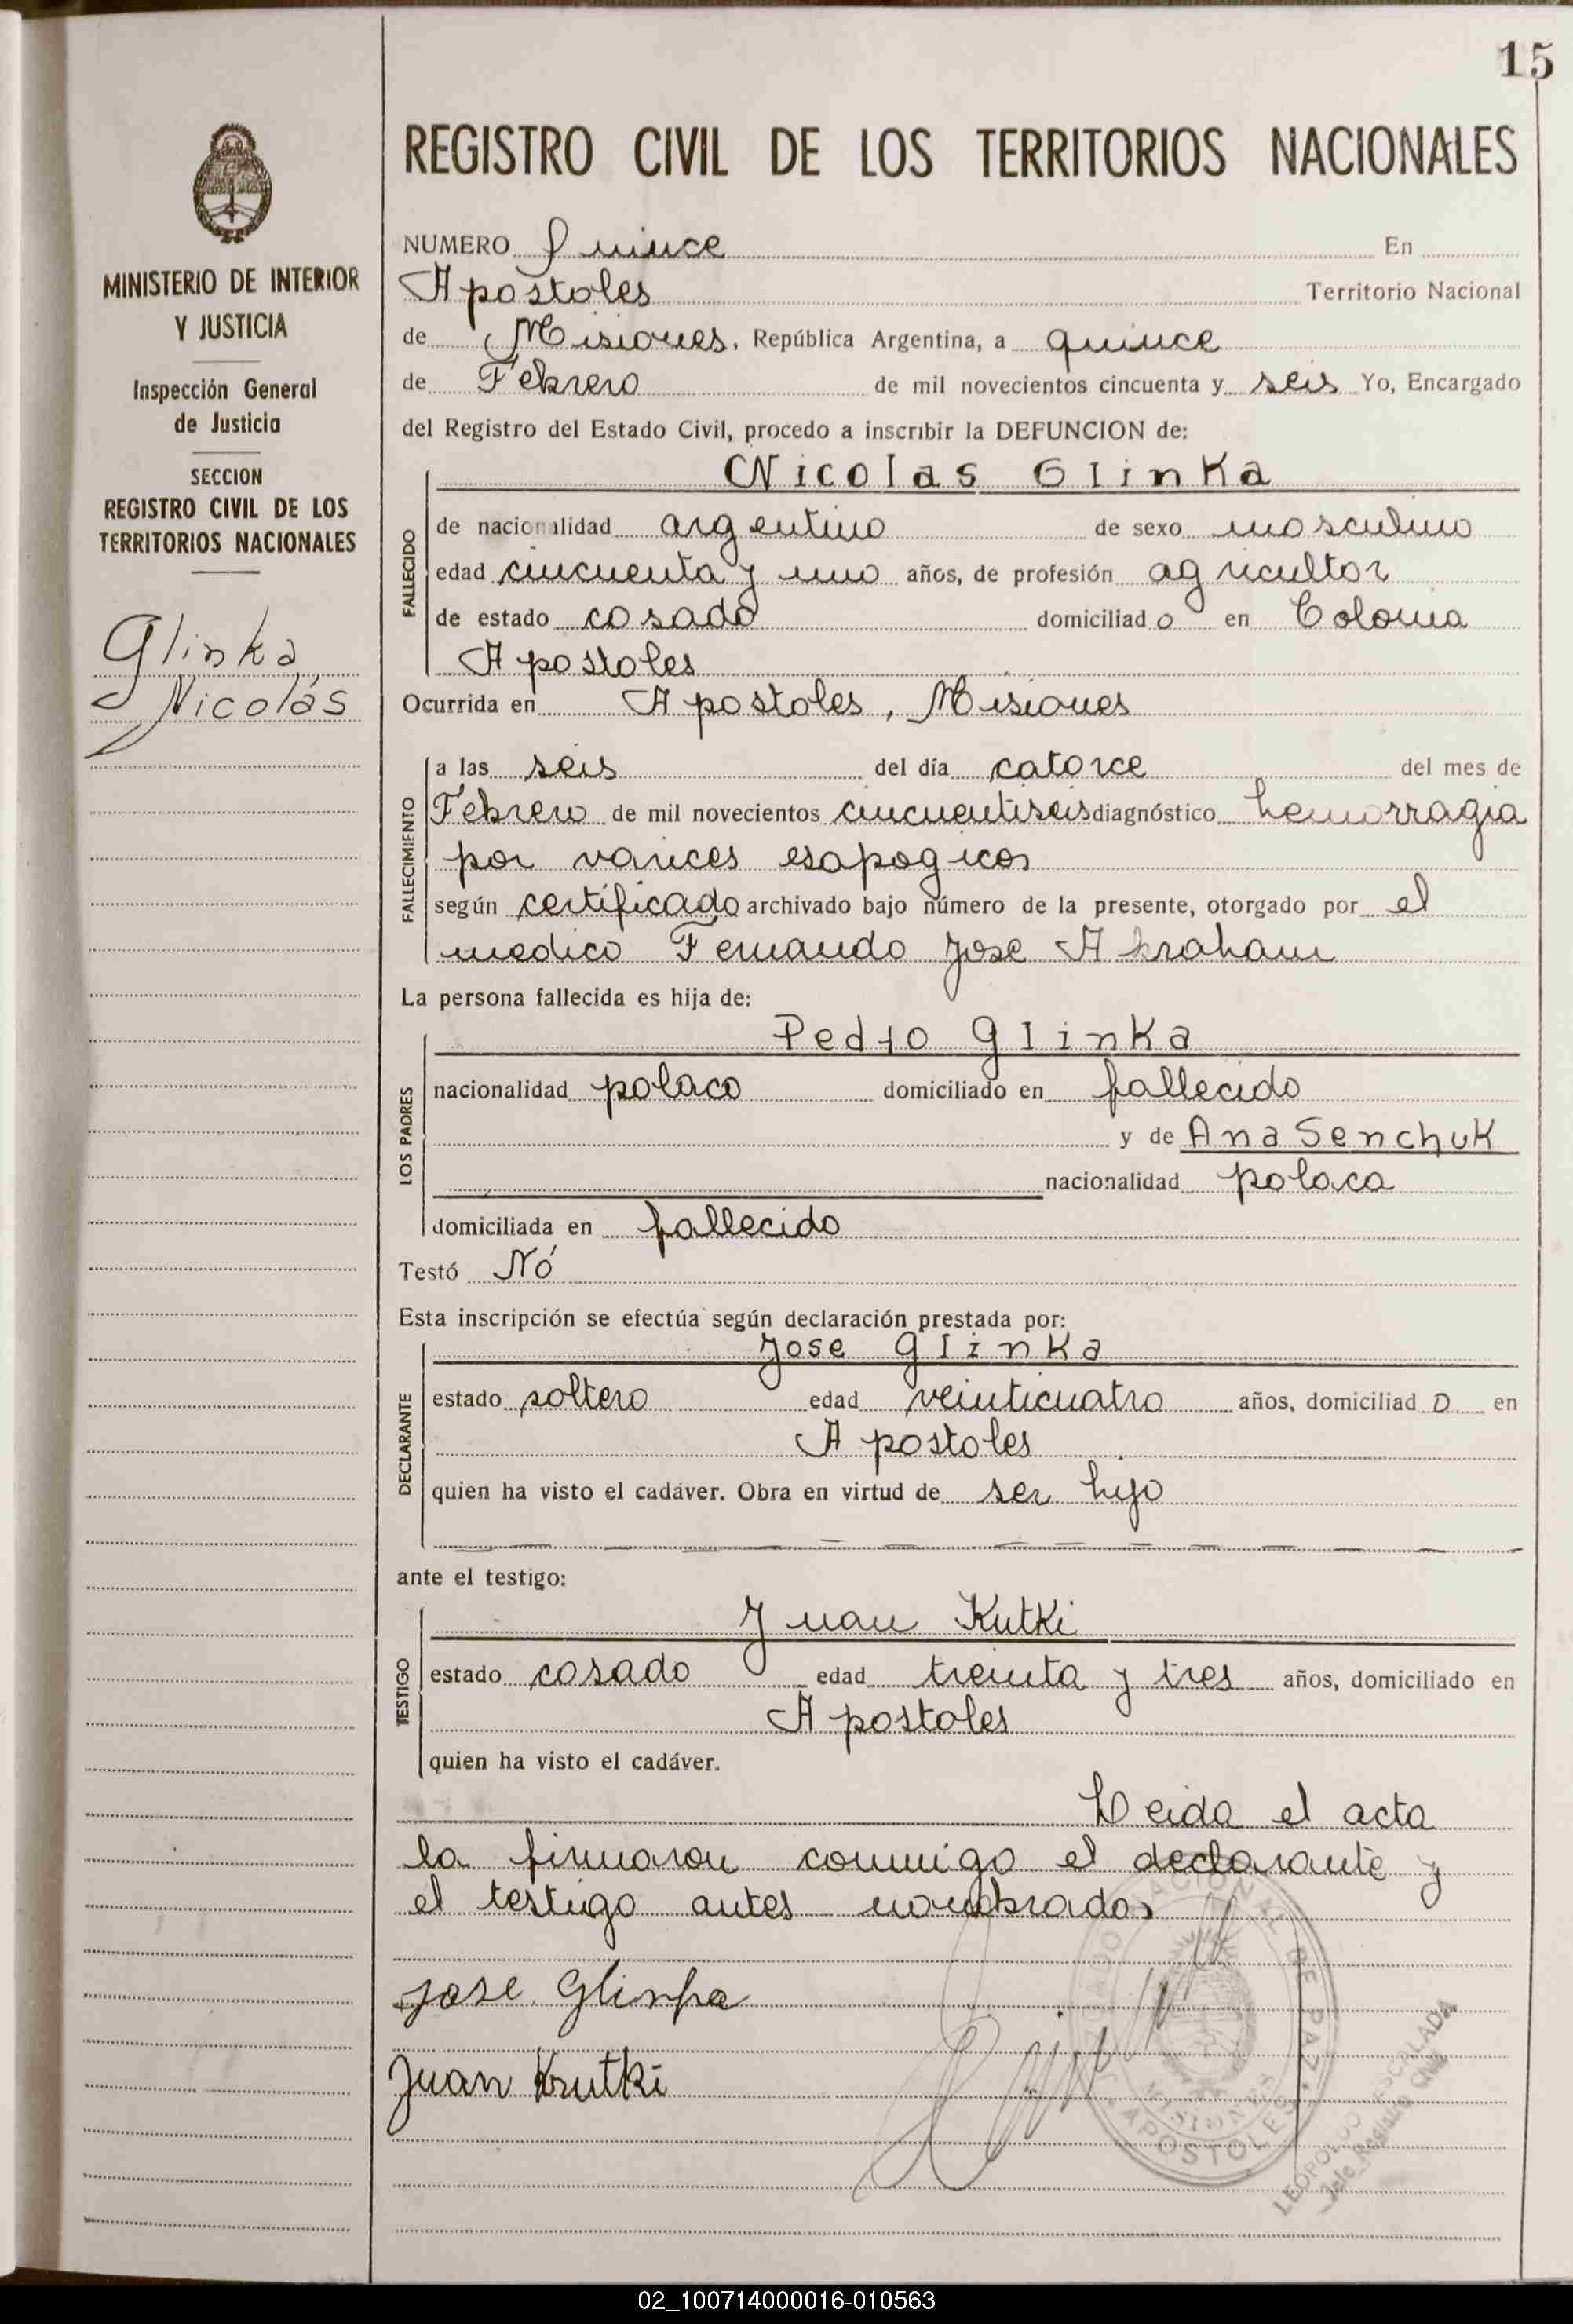 15
REGISTRO CIVIL DE LOS TERRITORIOS NACIONALES
MINISTERIO DE INTERIOR
Y JUSTICIA
Inspección General
de Justicia
SECCION
REGISTRO CIVIL DE LOS
TERRITORIOS NACIONALES
Glinka
Nicolás
NUMERO Quince En
Apostoles Territorio Nacional
de Misiones, República Argentina, a quince
de Febrero de mil novecientos cincuenta y seis Yo, Encargado
del Registro del Estado Civil, procedo a inscribir la DEFUNCION de:
Nicolas Glinka
FALLECIDO
de nacionalidad argentino de sexo masculino
edad cincuenta y uno años, de profesión agricultor
de estado casado domiciliado en Colonia
Apostoles
Ocurrida en Apostoles, Misiones
FALLECIMIENTO
a las seis del día catorce del mes de
Febrero de mil novecientos cincuentiseis diagnóstico hemorragia
por varices esapogicos
según certificado archivado bajo número de la presente, otorgado por el
medico Fernando Jose Abraham
La persona fallecida es hija de:
Pedro Glinka
LOS PADRES
nacionalidad polaco domiciliado en fallecido
y de Ana Senchuk
nacionalidad polaca
domiciliada en fallecido
Testó Nó
Esta inscripción se efectúa según declaración prestada por:
Jose Glinka
DECLARANTE
estado soltero edad veinticuatro años, domiciliado en
Apostoles
quien ha visto el cadáver. Obra en virtud de ser hijo
ante el testigo:
Juan Kutki
TESTIGO
estado casado edad treinta y tres años, domiciliado en
Apostoles
quien ha visto el cadáver.
Leida el acta
la firmaron conmigo el declarante y
el testigo antes nombrados
Jose Glinka
Juan Krutki
JUZGADO NACIONAL DE PAZ
MISIONES
APOSTOLES
LEOPOLDO ESCALADA
Jefe Registro Civil
02_100714000016-010563